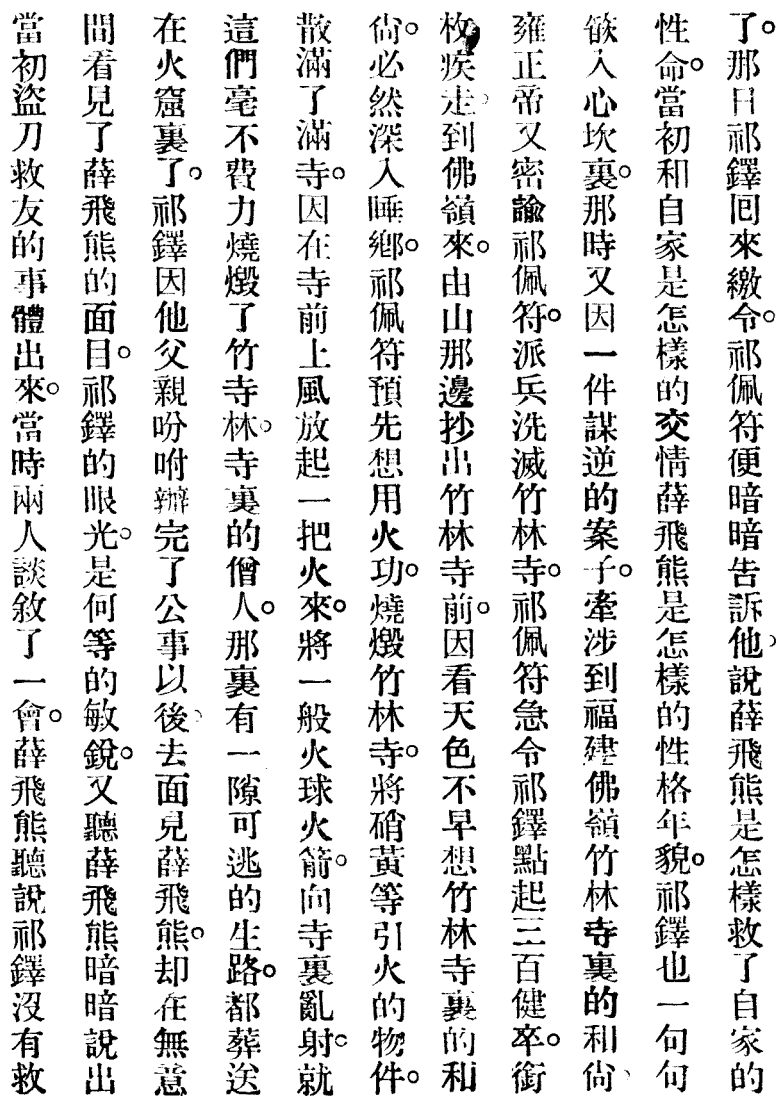 了。那日祁鐸回來繳令。祁佩符便暗暗告訴他。說薛飛熊是怎樣救了自家的
性命。當初和自家是怎樣的交情薛飛熊是怎樣的性格年貌。祁鐸也一句句
嵌入心坎裏。那時又因一件謀逆的案子。牽涉到福建佛嶺竹林寺裏的和尙、
雍正帝又密諭祁佩符。派兵洗滅竹林寺。祁佩符急令祁鐸點起三百健卒。銜
枚疾走。到佛嶺來。由山那邊抄出竹林寺前。因看天色不早想竹林寺裏的和
尙。必然深入睡鄉。祁佩符預先想用火功。燒燬竹林寺。將硝黃等引火的物件。
散滿了滿寺。因在寺前上風放起一把火來。將一般火球火箭。向寺裏亂射。就
這們毫不費力燒燬了竹寺林。寺裏的僧人。那裏有一隙可逃的生路。都葬送
在火窟裏了。祁鐸因他父親吩咐辦完了公事以後、去面見薛飛熊。却在無意
間看見了薛飛熊的面目。祁鐸的眼光。是何等的敏銳。又聽薛飛熊暗暗說出
當初盜刀救友的事體出來。當時兩人談敘了一會。薛飛熊聽說祁鐸沒有救